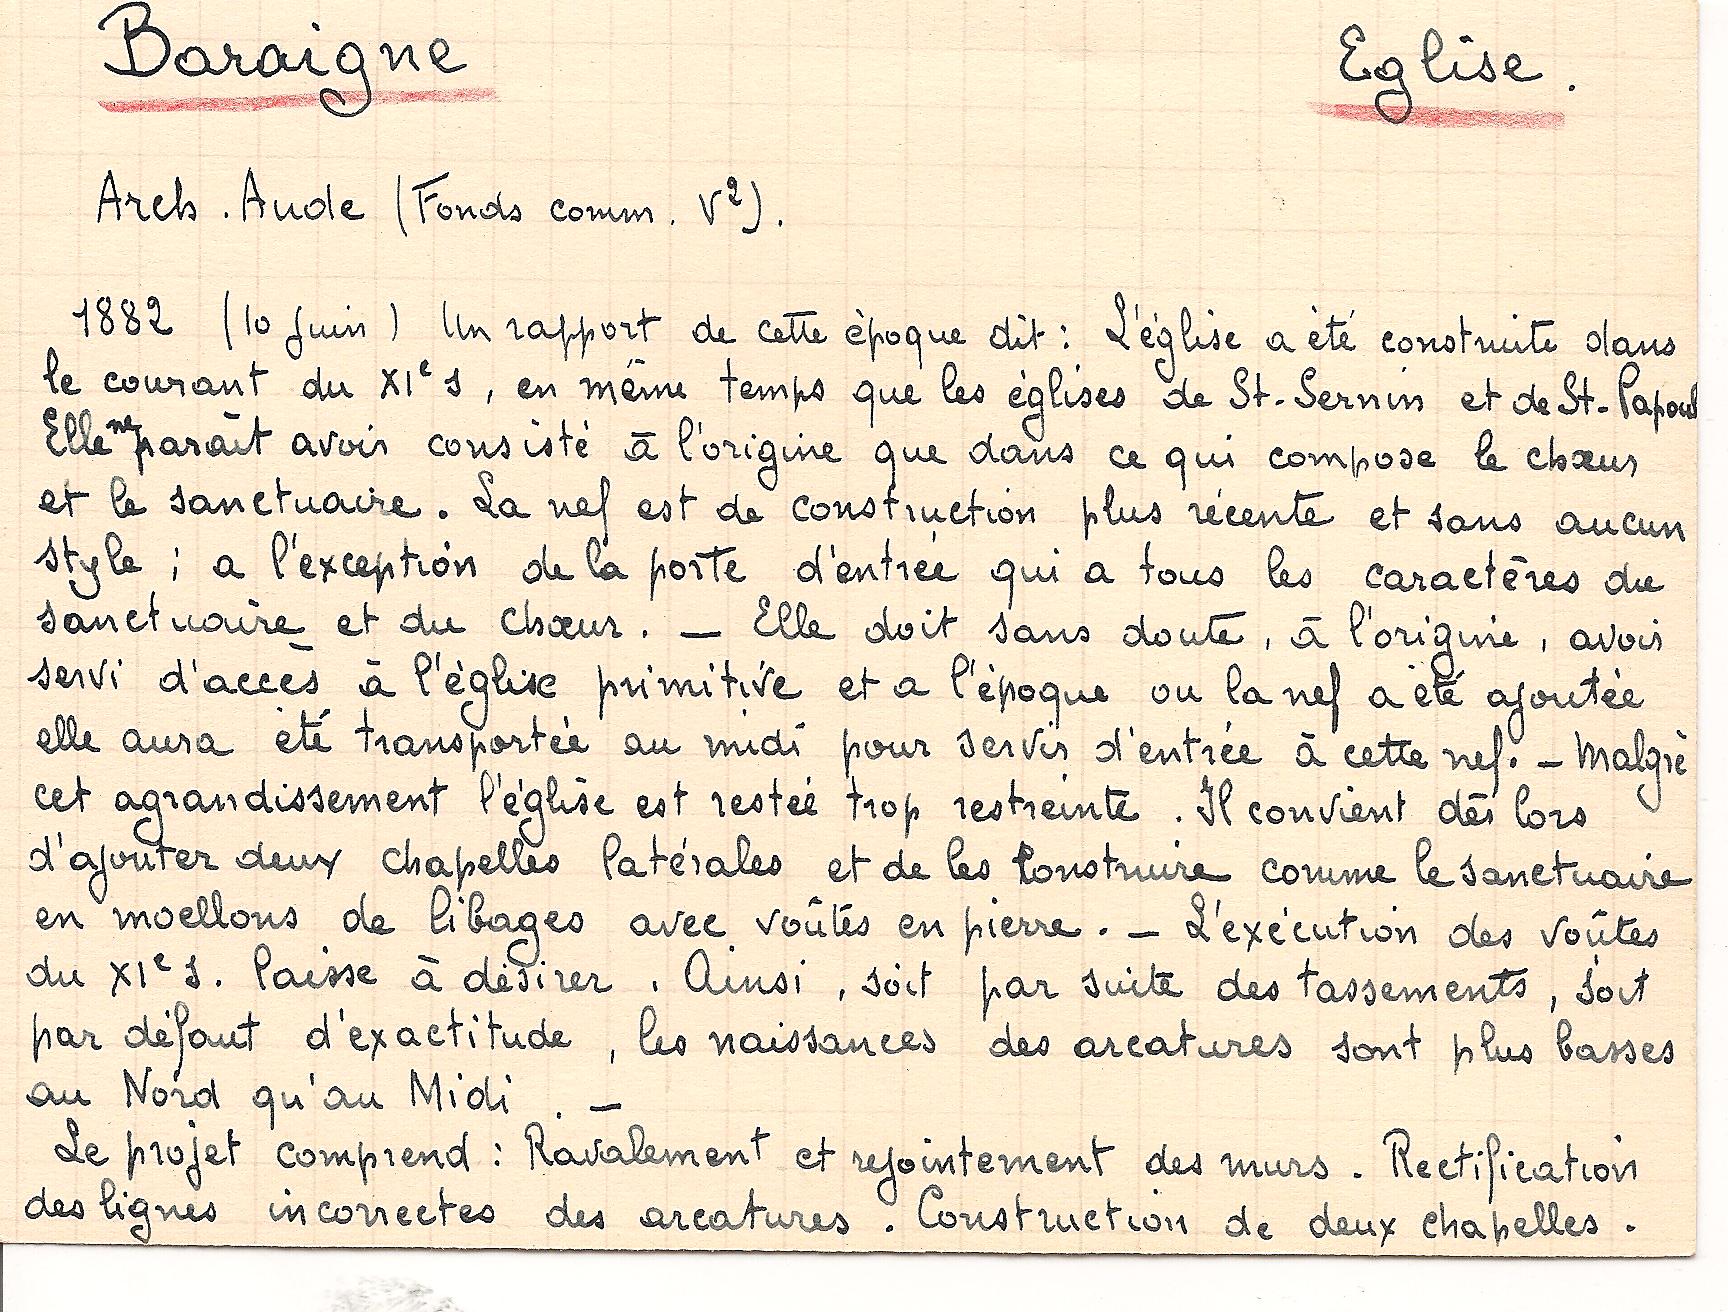 Baraigne Eglise.
Arch. Aude (Fonds comm. V²).
1882 (10 Juin) Un rapport de cette époque dit : L'église a été construite dans
le courant du XIᵉ s, en même temps que les églises de St-Sernin et de St-Papoul
Elle ne paraît avoir consisté à l'origine que dans ce qui compose le chœur
et le sanctuaire. La nef est de construction plus récente et sans aucun
style ; a l'exception de la porte d'entrée qui a tous les caractères du
sanctuaire et du chœur. — Elle doit sans doute, à l'origine, avoir
servi d'accès à l'église primitive et a l'époque ou la nef a été ajoutée
elle aura été transportée au midi pour servir d'entrée à cette nef. — Malgré
cet agrandissement l'église est restée trop restreinte. Il convient dès lors
d'ajouter deux chapelles latérales et de les construire comme le sanctuaire
en moellons de libages avec voûtes en pierre. — L'exécution des voûtes
du XIᵉ s. laisse à désirer. Ainsi, soit par suite des tassements, soit
par défaut d'exactitude, les naissances des arcatures sont plus basses
au Nord qu'au Midi. —
Le projet comprend : Ravalement et rejointement des murs. Rectification
des lignes incorrectes des arcatures. Construction de deux chapelles.